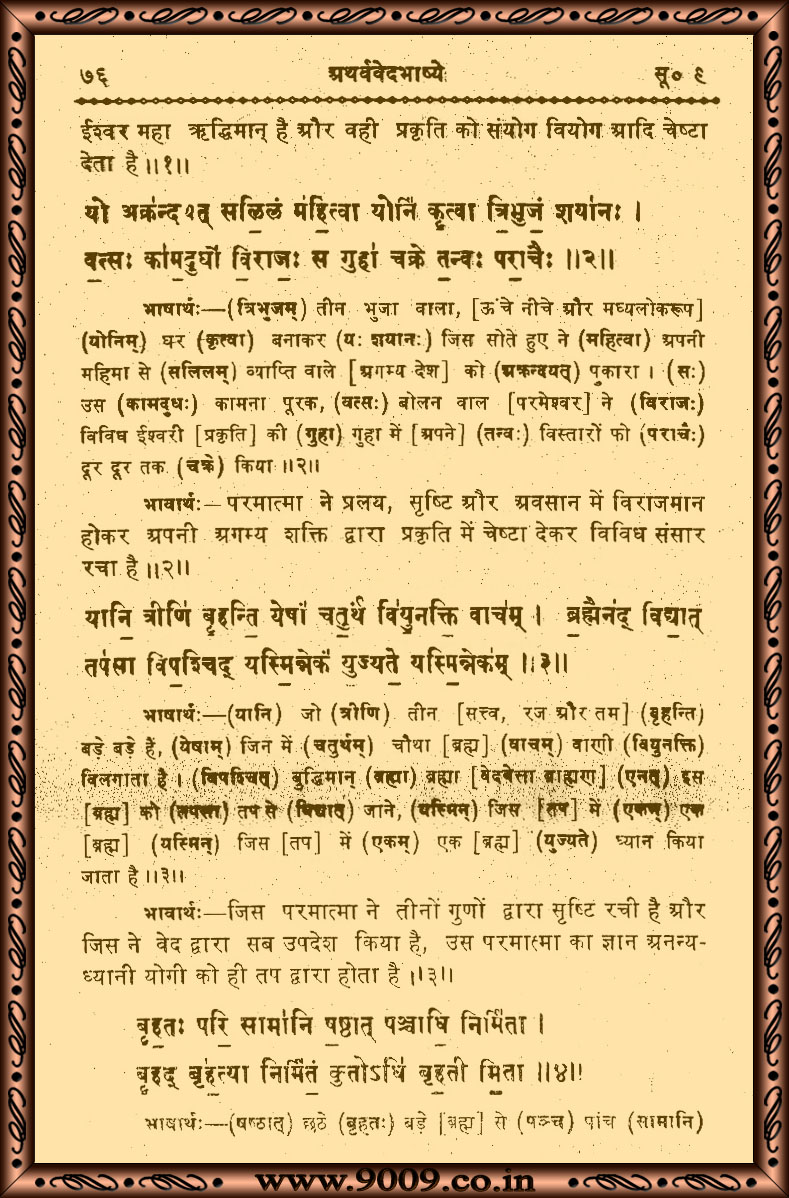 ७६ अथर्ववेदभाष्ये सू० ९
ईश्वर महा ऋद्धिमान् है और वही प्रकृति को संयोग वियोग आदि चेष्टा
देता है ॥१॥
यो अक्र॑न्दयत् सलि॒लं म॑हि॒त्वा योनिं॑ कृ॒त्वा त्रि॒भुजं॒ शया॑नः ।
व॒त्सः का॑म॒दुघो॑ वि॒राजः॒ स गुहा॑ चक्रे त॒न्वः परा॒चैः ॥२॥
भाषार्थः—(त्रिभुजम्) तीन भुजा वाला, [ऊंचे नीचे और मध्यलोकरूप]
(योनिम्) घर (कृत्वा) बनाकर (यः शयानः) जिस सोते हुए ने (महित्वा) अपनी
महिमा से (सलिलम्) व्याप्ति वाले [अगम्य देश] को (अक्रन्दयत्) पुकारा । (सः)
उस (कामदुधः) कामना पूरक, (वत्सः) बोलन वाल [परमेश्वर] ने (विराजः)
विविध ईश्वरी [प्रकृति] की (गुहा) गुहा में [अपने] (तन्वः) विस्तारों को (पराचैः)
दूर दूर तक (चक्रे) किया ॥२॥
भावार्थः—परमात्मा ने प्रलय, सृष्टि और अवसान में विराजमान
होकर अपनी अगम्य शक्ति द्वारा प्रकृति में चेष्टा देकर विविध संसार
रचा है ॥२॥
यानि॒ त्रीणि॑ बृ॒हन्ति॒ येषां॑ चतु॒र्थं वि॑यु॒नक्ति॒ वाच॑म् । ब्र॒ह्मैन॑द् विद्या॒त्
तप॑सा विप॒श्चिद् यस्मि॒न्नेकं॑ यु॒ज्यते॒ यस्मि॒न्नेक॑म् ॥३॥
भाषार्थः—(यानि) जो (त्रीणि) तीन [सत्त्व, रज और तम] (बृहन्ति)
बड़े बड़े हैं, (येषाम्) जिन में (चतुर्थम्) चौथा [ब्रह्म] (वाचम्) वाणी (वियुनक्ति)
विलगाता है । (विपश्चित्) बुद्धिमान् (ब्रह्मा) ब्रह्मा [वेदवेत्ता ब्राह्मण] (एनत्) इस
[ब्रह्म] को (तपसा) तप से (विद्यात्) जाने, (यस्मिन्) जिस [तप] में (एकम्) एक
[ब्रह्म] (यस्मिन्) जिस [तप] में (एकम्) एक [ब्रह्म] (युज्यते) ध्यान किया
जाता है ॥३॥
भावार्थः—जिस परमात्मा ने तीनों गुणों द्वारा सृष्टि रची है और
जिस ने वेद द्वारा सब उपदेश किया है, उस परमात्मा का ज्ञान अनन्य-
ध्यानी योगी को ही तप द्वारा होता है ॥३॥
बृ॒ह॒तः परि॒ सामा॑नि ष॒ष्ठात् पञ्चाधि॒ निर्मि॑ता ।
बृ॒हद् बृ॑ह॒त्या निर्मि॑तं॒ कुतोऽधि॑ बृह॒ती मि॒ता ॥४॥
भाषार्थः—(षष्ठात्) छठे (बृहतः) बड़े [ब्रह्म] से (पञ्च) पांच (सामानि)
www.9009.co.in